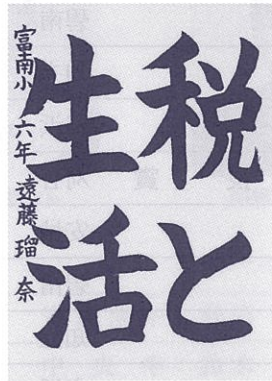 税と
生活
富南小 六年 遠藤瑠奈